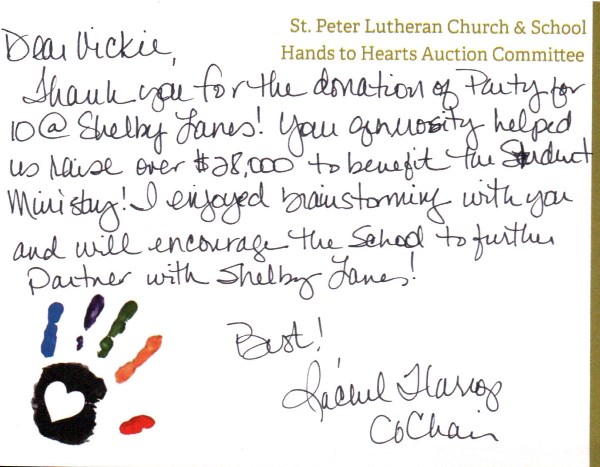 St. Peter Lutheran Church & School
Hands to Hearts Auction Committee
Dear Vickie,
Thank you for the donation of Party for
10 @ Shelby Lanes! Your generosity helped
us raise over $28,000 to benefit the Student
Ministry! I enjoyed brainstorming with you
and will encourage the School to further
partner with Shelby Lanes!
Best!
Rachel
CoChair